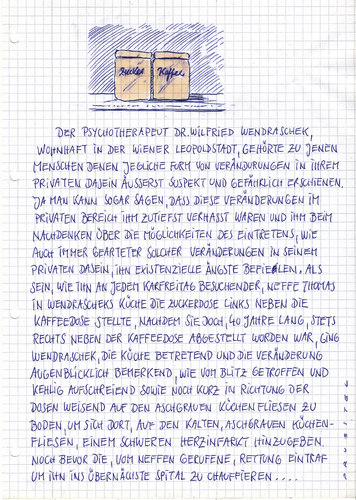 Zucker Kaffee
DER PSYCHOTHERAPEUT DR. WILFRIED WENDRASCHEK,
WOHNHAFT IN DER WIENER LEOPOLDSTADT, GEHÖRTE ZU JENEN
MENSCHEN DENEN JEGLICHE FORM VON VERÄNDURUNGEN IN IHREM
PRIVATEN DASEIN ÄUSSERST SUSPEKT UND GEFÄHRLICH ERSCHIENEN.
JA MAN KANN SOGAR SAGEN, DASS DIESE VERÄNDERUNGEN IM
PRIVATEN BEREICH IHM ZUTIEFST VERHASST WAREN UND IHM BEIM
NACHDENKEN ÜBER DIE MÖGLICHKEITEN DES EINTRETENS, WIE
AUCH IMMER GEARTETER SOLCHER VERÄNDERUNGEN IN SEINEM
PRIVATEN DASEIN, IHN EXISTENZIELLE ÄNGSTE BEFIELEN. ALS
SEIN, WIE IHN AN JEDEM KARFREITAG BESUCHENDER, NEFFE THOMAS
IN WENDRASCHEKS KÜCHE DIE ZUCKERDOSE LINKS NEBEN DIE
KAFFEEDOSE STELLTE, NACHDEM SIE DOCH, 40 JAHRE LANG, STETS
RECHTS NEBEN DER KAFFEEDOSE ABGESTELLT WORDEN WAR, GING
WENDRASCHEK, DIE KÜCHE BETRETEND UND DIE VERÄNDERUNG
AUGENBLICKLICH BEMERKEND, WIE VOM BLITZ GETROFFEN UND
KEHLIG AUFSCHREIEND SOWIE NOCH KURZ IN RICHTUNG DER
DOSEN WEISEND AUF DEN ASCHGRAUEN KÜCHENFLIESEN ZU
BODEN, UM SICH DORT, AUF DEN KALTEN, ASCHGRAUEN KÜCHEN-
FLIESEN, EINEM SCHWEREN HERZINFARKT HINZUGEBEN
NOCH BEVOR DIE, VOM NEFFEN GERUFENE, RETTUNG EINTRAF
UM IHN INS ÜBERNÄCHSTE SPITAL ZU CHAUFFIEREN....